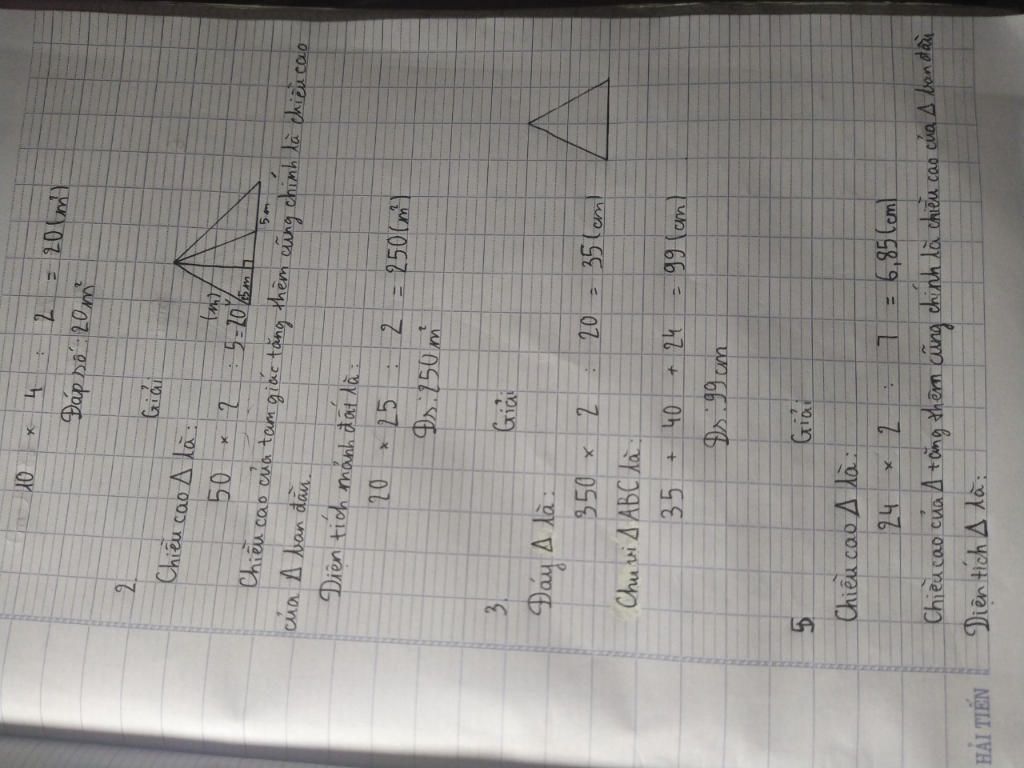 10 × 4 : 2 = 20 (m²)
Đáp số : 20 m²
2.
Giải
Chiều cao Δ là :
50 × 2 : 5 = 20 (m)
5m
5m
Chiều cao của tam giác tăng thêm cũng chính là chiều cao
của Δ ban đầu.
Diện tích mảnh đất là :
20 × 25 : 2 = 250 (m²)
Đs : 250 m²
3.
Giải
Đáy Δ là :
350 × 2 : 20 = 35 (cm)
Chu vi Δ ABC là :
35 + 40 + 24 = 99 (cm)
Đs : 99 cm
5
Giải
Chiều cao Δ là :
24 × 2 : 7 = 6,85 (cm)
Chiều cao của Δ tăng thêm cũng chính là chiều cao của Δ ban đầu
Diện tích Δ là :
HẢI TIẾN